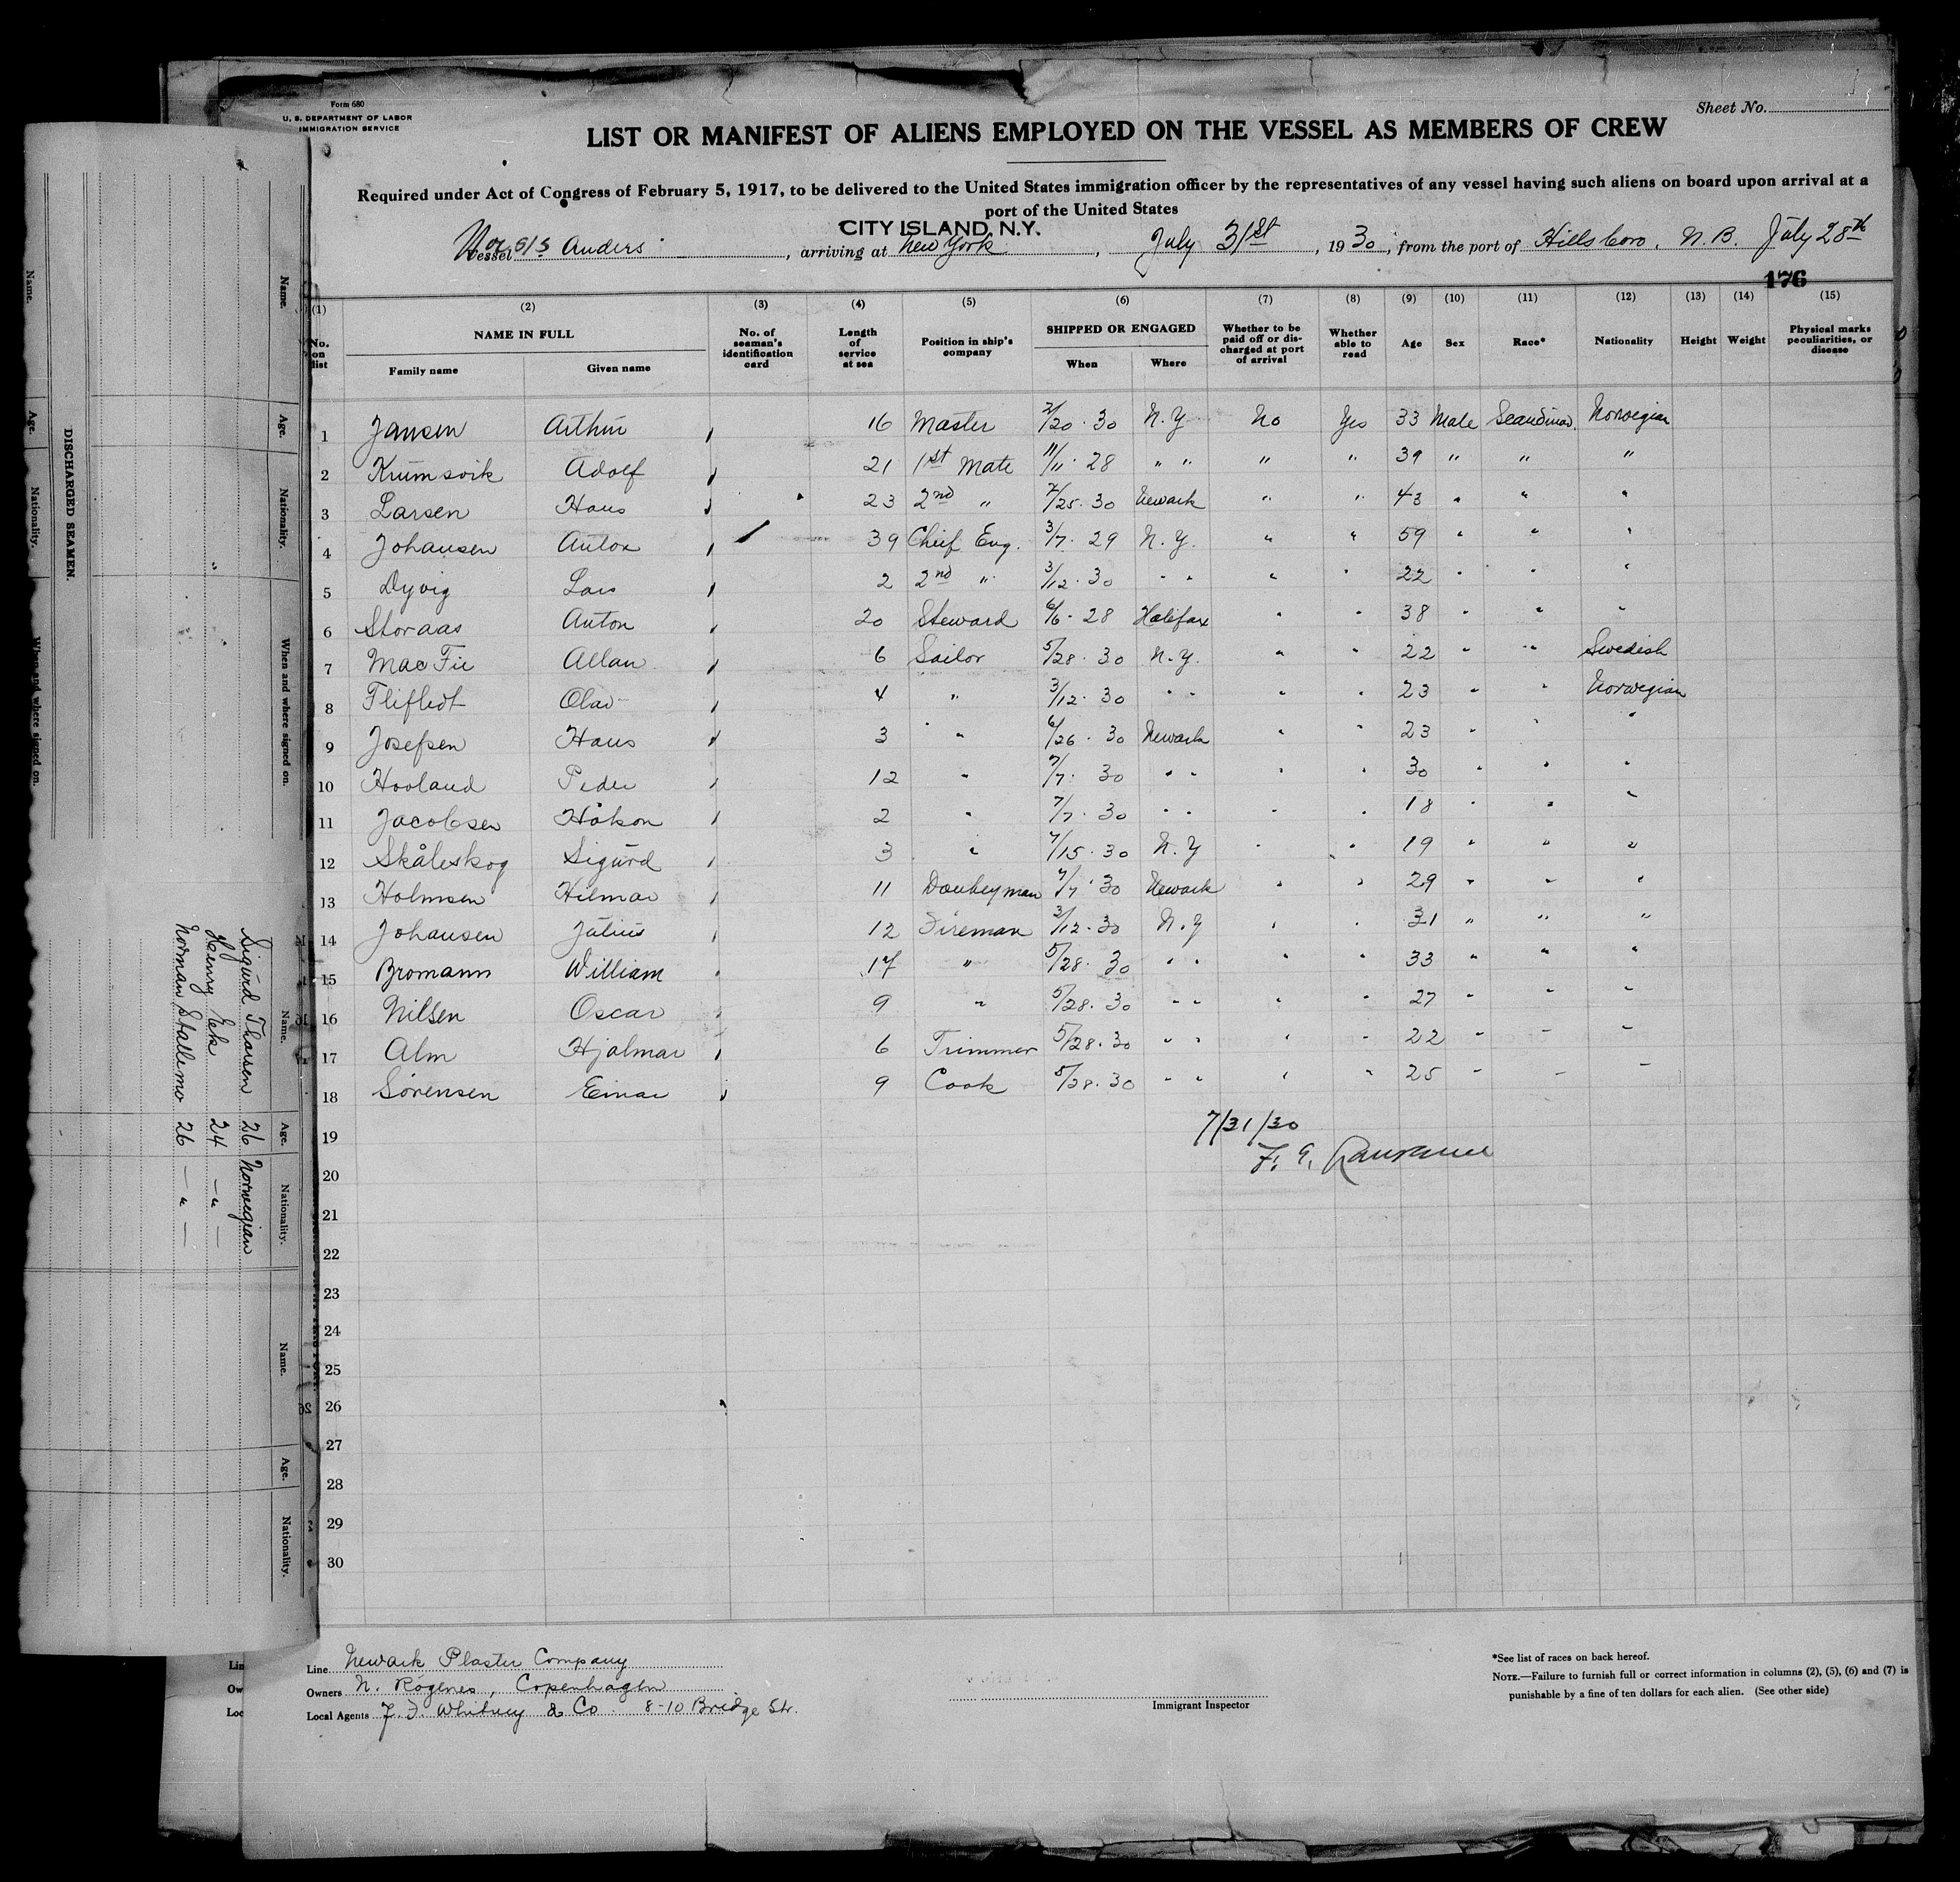 Form 680
U. S. DEPARTMENT OF LABOR
IMMIGRATION SERVICE
Sheet No.
LIST OR MANIFEST OF ALIENS EMPLOYED ON THE VESSEL AS MEMBERS OF CREW
Required under Act of Congress of February 5, 1917, to be delivered to the United States immigration officer by the representatives of any vessel having such aliens on board upon arrival at a
port of the United States
CITY ISLAND, N.Y.
Vessel Nor. S/S Anders, arriving at New York, July 31st, 1930, from the port of Hillsboro, N. B. July 28th
176
(1) (2) (3) (4) (5) (6) (7) (8) (9) (10) (11) (12) (13) (14) (15)
No. on list NAME IN FULL Family name Given name No. of seaman's identification card Length of service at sea Position in ship's company SHIPPED OR ENGAGED When Where Whether to be paid off or discharged at port of arrival Whether able to read Age Sex Race* Nationality Height Weight Physical marks peculiarities, or disease
1 Jansen Arthur 16 Master 2/20. 30 N. Y. No Yes 33 Male Scandinav. Norwegian
2 Krumsvik Adolf 21 1st Mate 11/11. 28 " " " " 39 " " "
3 Larsen Hans 23 2nd " 7/25. 30 Newark " " 43 " " "
4 Johansen Anton 39 Chief Eng. 3/7. 29 N. Y. " " 59 " " "
5 Dyvig Lars 2 2nd " 3/12. 30 " " " " 22 " " "
6 Storaas Anton 20 Steward 6/6. 28 Halifax " " 38 " " "
7 MacFie Allan 6 Sailor 5/28. 30 N. Y. " " 22 " " Swedish
8 Fliflet Olav 4 " 3/12. 30 " " " " 23 " " Norwegian
9 Josefsen Hans 3 " 6/26. 30 Newark " " 23 " " "
10 Hovland Peder 12 " 7/7. 30 " " " " 30 " " "
11 Jacobsen Håkon 2 " 7/7. 30 " " " " 18 " " "
12 Skåleskog Sigurd 3 " 7/15. 30 N. Y " " 19 " " "
13 Holmsen Hilmar 11 Donkeyman 7/7. 30 Newark " " 29 " " "
14 Johansen Julius 12 Fireman 3/12. 30 N. Y " " 31 " " "
15 Bromann William 17 " 5/28. 30 " " " " 33 " " "
16 Nilsen Oscar 9 " 5/28. 30 " " " " 27 " " "
17 Alm Hjalmar 6 Trimmer 5/28. 30 " " " " 22 " " "
18 Sørensen Einar 9 Cook 5/28. 30 " " " " 25 " " "
19 7/31/30
20
21
22
23
24
25
26
27
28
29
30
Line Newark Plaster Company
Owners N. Rogenes, Copenhagen
Local Agents J. F. Whitney & Co. 8-10 Bridge Str.
Immigrant Inspector
*See list of races on back hereof.
NOTE.—Failure to furnish full or correct information in columns (2), (5), (6) and (7) is
punishable by a fine of ten dollars for each alien. (See other side)
DISCHARGED SEAMEN.
Name. Age. Nationality. When and where signed on.
Name. Age. Nationality. When and where signed on.
Name. Age. Nationality.
Sigurd Thorsen 26 Norwegian
Henry Eek 24 — " —
Norman Stallemo 26 — " —
Name. Age. Nationality.
Lin
Ow
Loc